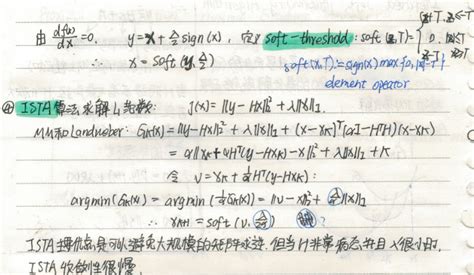 由 df(x)/dx = 0. y = x + λ/2 sign(x), 定义 soft-threshold: soft(x,T) = { x+T, x≤-T
0, |x|<T
x-T
∴ x = soft(y, λ/2) soft(x,T) := sign(x) max{0, |x|-T}
element opeator
④ ISTA算法求解L1范数: J(x) = ||y-Hx||₂² + λ||x||₁.
MM和Landweber: Gk(x) = ||y-Hx||₂² + λ||x||₁ + (x-xk)ᵀ(αI-HᵀH)(x-xk)
= α||xk + 1/α Hᵀ(y-Hxk) - x||₂² + λ||x||₁ + K
令 v = xk + 1/α Hᵀ(y-Hxk):
argmin(Gk(x)) = argmin(1/α Gk(x)) = ||v-x||₂² + λ/α ||x||₁
∴ xk+1 = soft(v, λ/2α) ?
ISTA 优点是可以避免大规模的矩阵求逆, 但当H非常病态并且λ很小时,
ISTA 收敛性很慢.